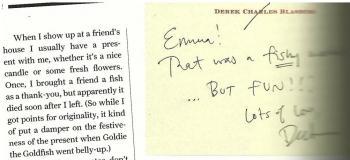 When I show up at a friend's
house I usually have a pres-
ent with me, whether it's a nice
candle or some fresh flowers.
Once, I brought a friend a fish
as a thank-you, but apparently it
died soon after I left. (So while I
got points for originality, it kind
of put a damper on the festive-
ness of the present when Goldie
the Goldfish went belly-up.)
don't
DEREK CHARLES
Emma!
That was a fishy
... BUT FUN!!
Lots of